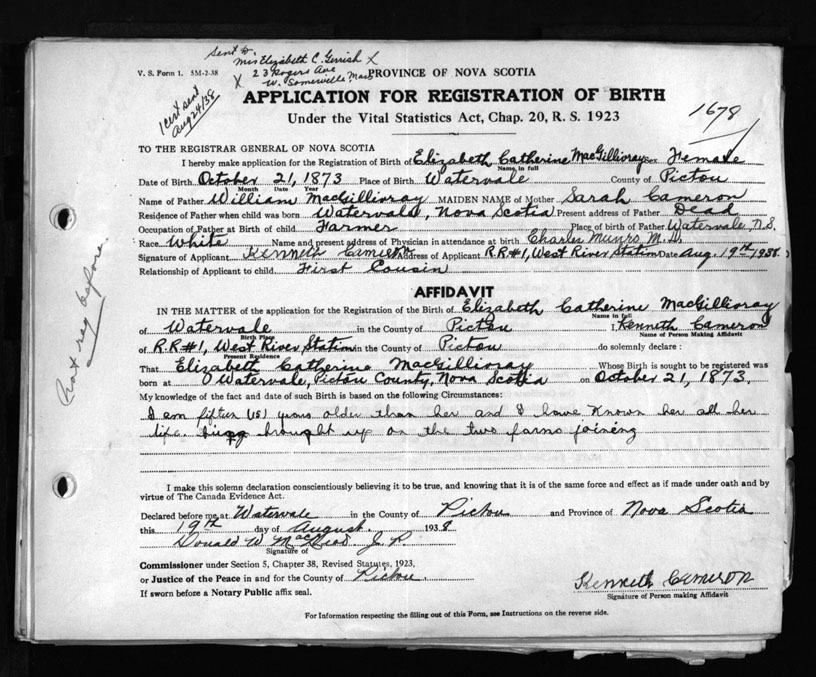 Sent to
Mrs Elizabeth C. Gerrish X
V. S. Form 1. 5M-2-38
X 23 Rogers Ave
W. Somerville Mass
PROVINCE OF NOVA SCOTIA
1 cert sent
Aug 24/38
APPLICATION FOR REGISTRATION OF BIRTH
1678
Under the Vital Statistics Act, Chap. 20, R. S. 1923
TO THE REGISTRAR GENERAL OF NOVA SCOTIA
I hereby make application for the Registration of Birth of Elizabeth Catherine MacGillivray Sex Female
Name, in full
Date of Birth October 21, 1873 Place of Birth Watervale County of Pictou
Month Date Year
Name of Father William MacGillivray MAIDEN NAME of Mother Sarah Cameron
Residence of Father when child was born Watervale, Nova Scotia Present address of Father Dead
Occupation of Father at Birth of child Farmer Place of birth of Father Watervale N.S.
Race White Name and present address of Physician in attendance at birth Charles Munro M.D.
Signature of Applicant Kenneth Cameron Address of Applicant R.R#1, West River Station Date Aug. 19th 1938
Relationship of Applicant to child First Cousin
Not reg before.
AFFIDAVIT
IN THE MATTER of the application for the Registration of the Birth of Elizabeth Catherine MacGillivray
Name in full
of Watervale in the County of Pictou I, Kenneth Cameron
Birth Place Name of Person Making Affidavit
of R.R#1, West River Station in the County of Pictou do solemnly declare :
Present Residence
That Elizabeth Catherine MacGillivray Whose Birth is sought to be registered was
born at Watervale, Pictou County, Nova Scotia on October 21, 1873.
My knowledge of the fact and date of such Birth is based on the following Circumstances:
I am fifteen (15) years older than her and I have Known her all her
life. brought up on the two farms joining
I make this solemn declaration conscientiously believing it to be true, and knowing that it is of the same force and effect as if made under oath and by
virtue of The Canada Evidence Act.
Declared before me at Watervale in the County of Pictou and Province of Nova Scotia
this 19th day of August. 1938
Donald W MacLeod J P.
Signature of
Commissioner under Section 5, Chapter 38, Revised Statutes, 1923,
or Justice of the Peace in and for the County of Pictou.
Kenneth Cameron
If sworn before a Notary Public affix seal.
Signature of Person making Affidavit
For Information respecting the filling out of this Form, see Instructions on the reverse side.